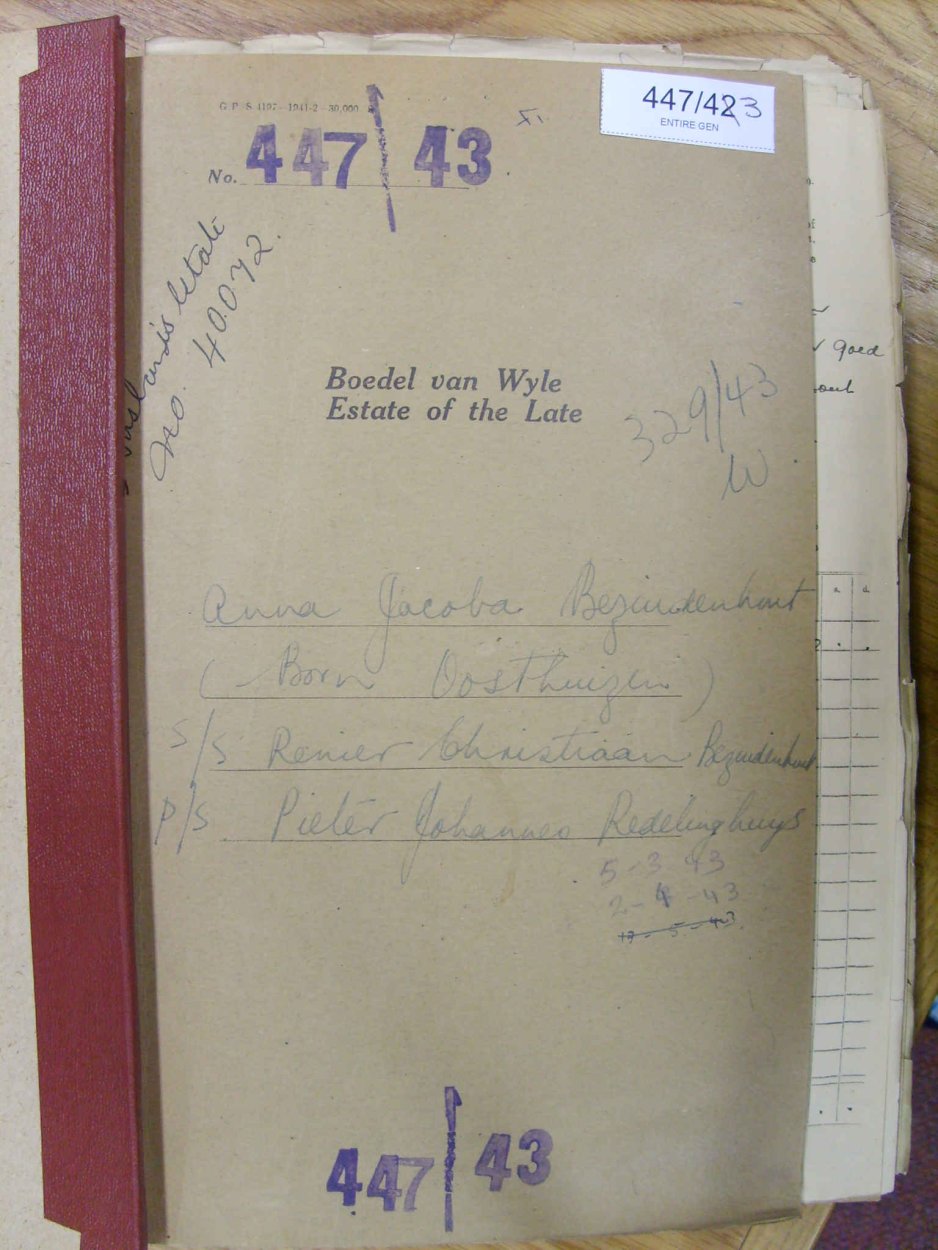 G.P.-S.4197-1941-2-30,000
XI.
447/423
ENTIRE GEN
No. 447/43
Husband's Estate
No. 40072.
Boedel van Wyle
Estate of the Late
329/43
W.
Anna Jacoba Bezuidenhout
(Born Oosthuizen)
S/S Renier Christiaan Bezuidenhout
P/S. Pieter Johannes Redelinghuys
5-3 43
2-4-43
17-5-43.
447/43
goed